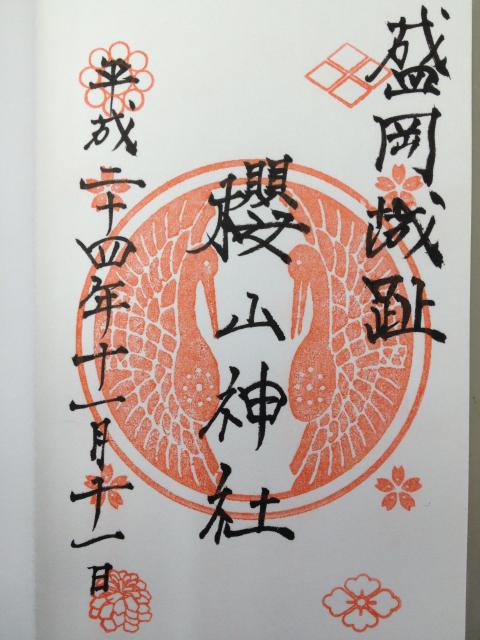 盛岡城趾
櫻山神社
平成二十四年十一月十一日